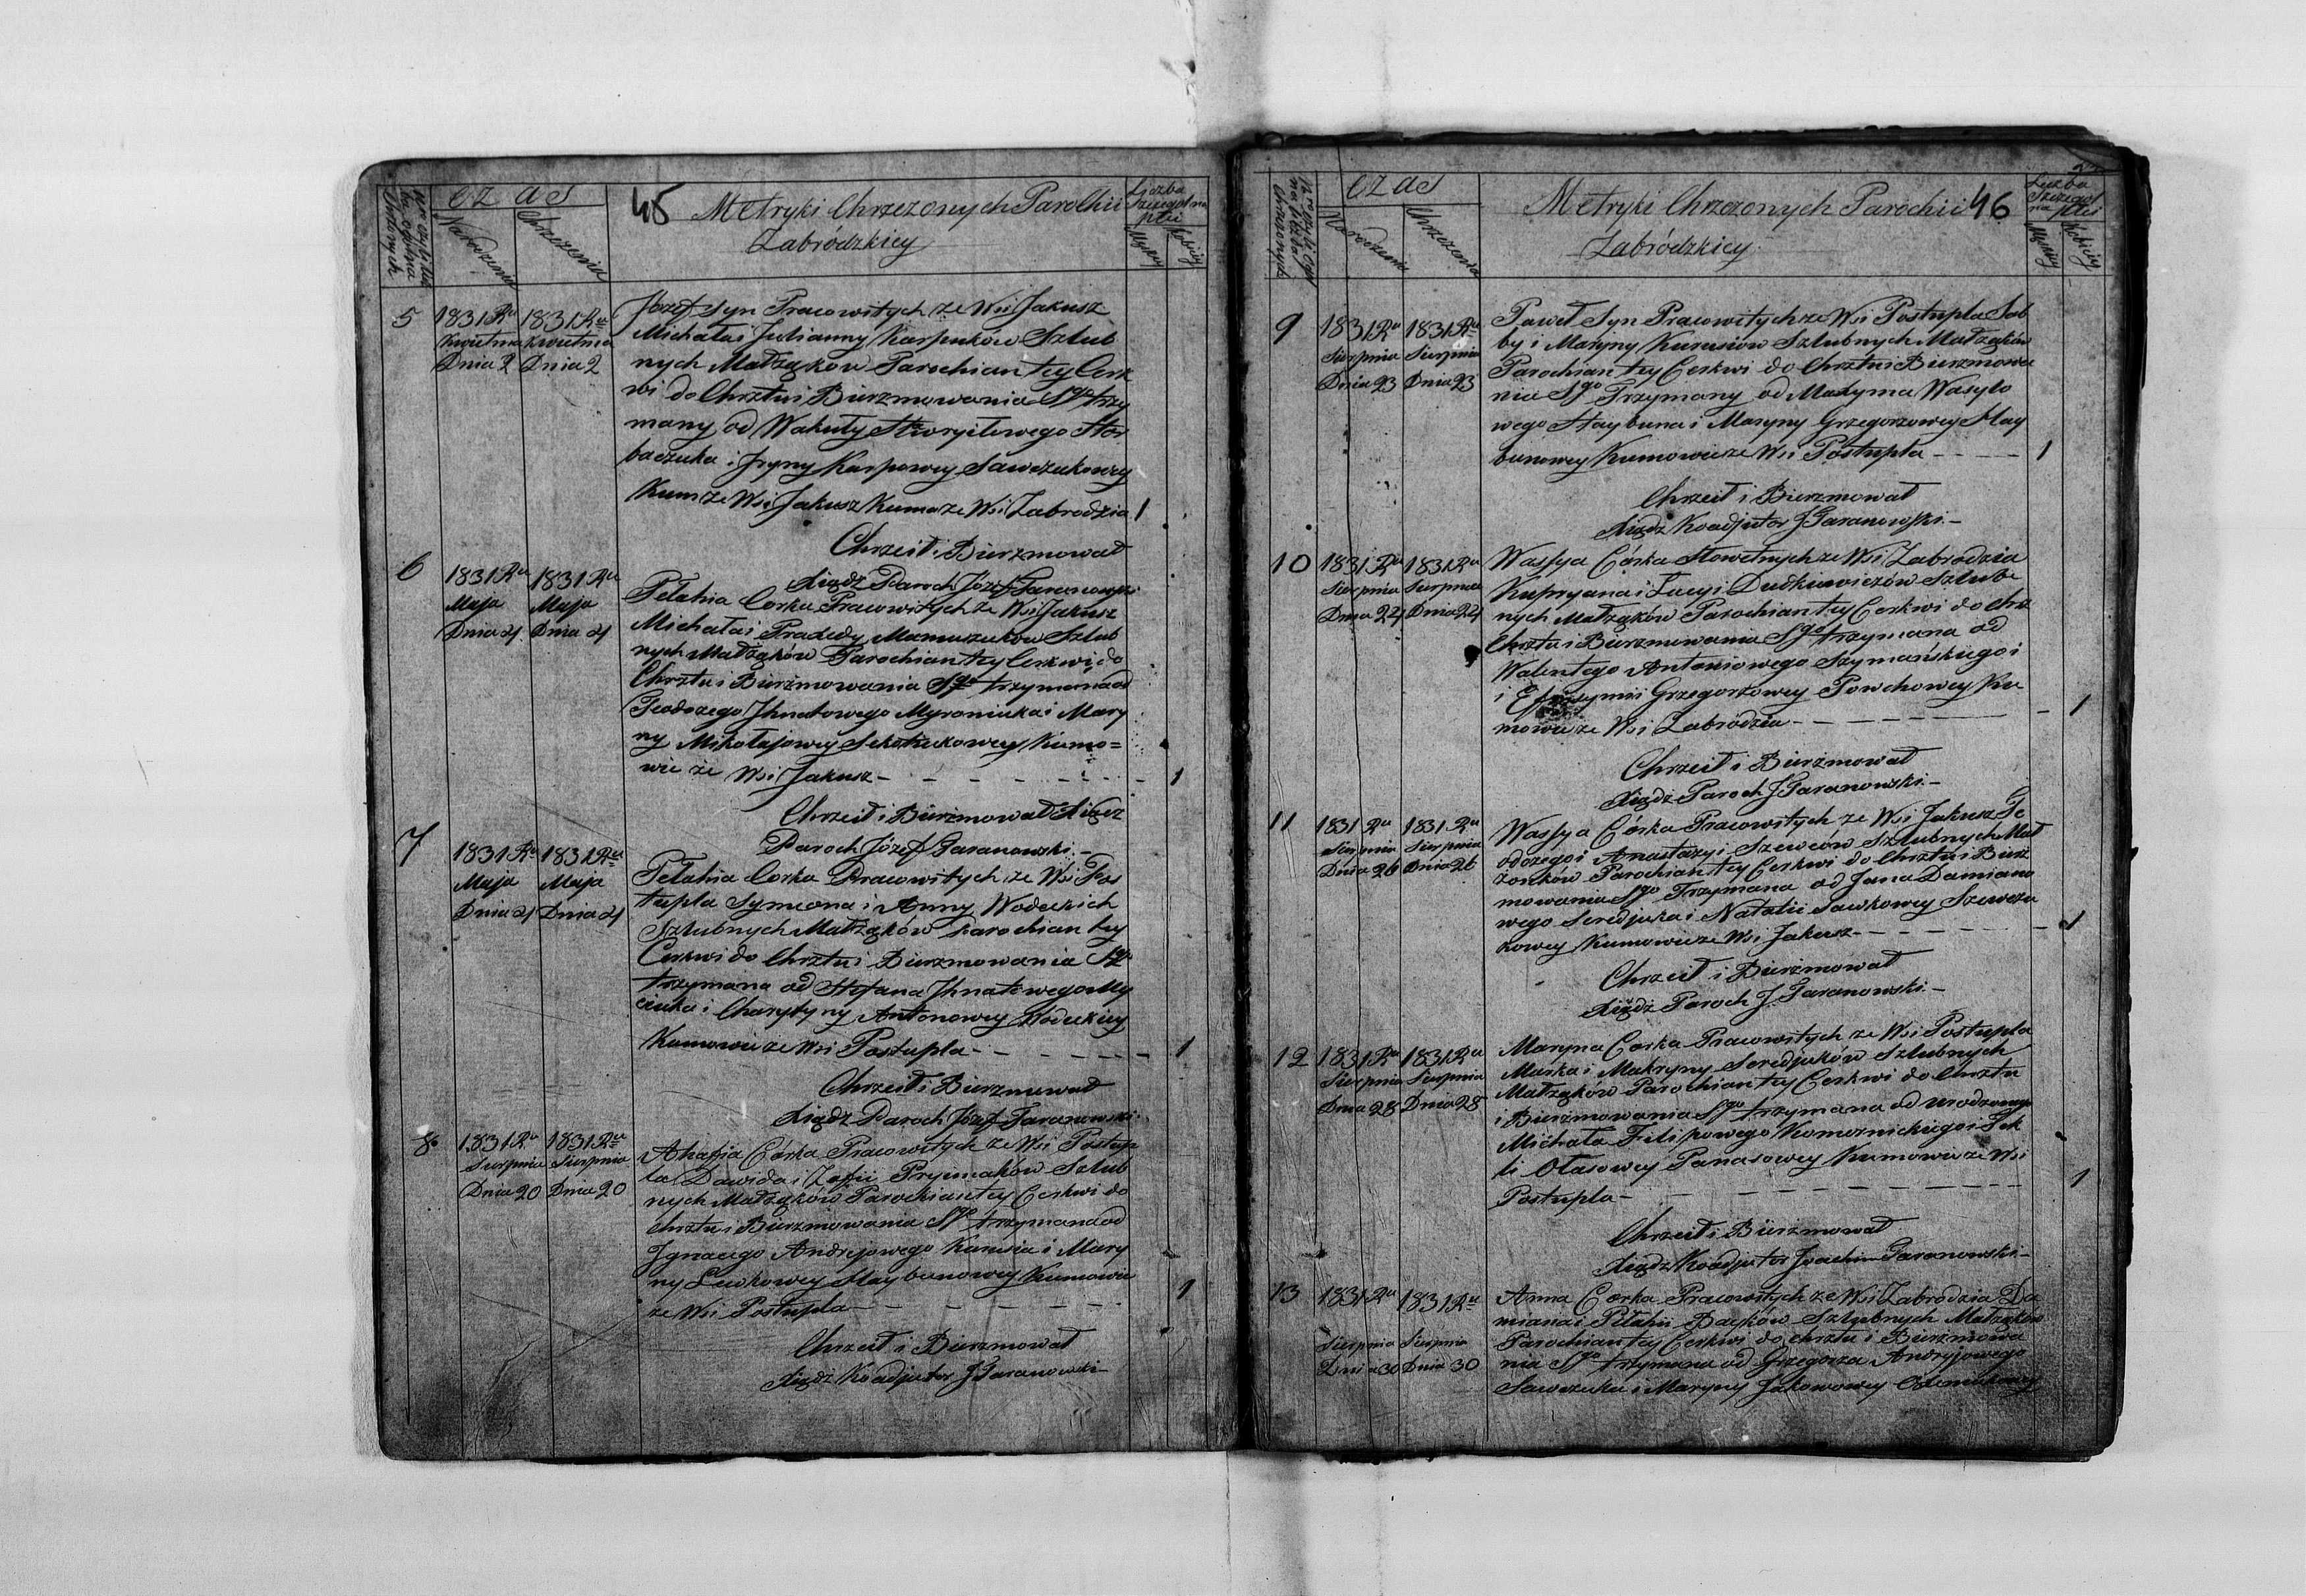 Czas
Narodzenia
Chrzczenia
45 Metryki Chrzczonych Parochii
Zabródzkiey
Liczba
Szczegolna
płci
Męskiey
Kobiecy
5
1831 Ru
Kwietnia
Dnia 2
1831 Ru
Kwietnia
Dnia 2
Jozef Syn Pracowitych ze Wsi Jakusz
Michała i Julianny Karpuków Szlub
nych Małżąkow Parochian tey Cerk
wi do Chrztu i Bierzmowania Sgo trzy
many od Wakuły
i Jryny Karpowey Sawczukowey
Kum ze Wsi Jakusz Kuma ze Wsi Zabrodzia 1
Chrzcił i Bierzmował
Xiądz Paroch Józef Taranowski
6
1831 Ru
Maja
Dnia 4
1831 Ru
Maja
Dnia 4
Pełahia Corka Pracowitych ze Wsi Jakusz
Michała i Praxedy Szlub
nych Małżąków Parochian tey Cerkwi do
Chrztu i Bierzmowania Sgo trzymana od
Teodozego Jhnatowego Myroniuka i Mary
ny Mikołajowey Kumo=
wie ze Wsi Jakusz - - - - - - - 1
Chrzcił i Bierzmował Xiądz
Paroch Józef Taranowski.-
7
1831 Ru
Maja
Dnia 4
1831 Ru
Maja
Dnia 4
Pełahia Corka Pracowitych ze Wsi Pos
tupla Symeona i Anny Wodeckich
Szlubnych Małżąków Parochian tey
Cerkwi do Chrztu i Bierzmowania Sgo
trzymana od Stefana Jhnatowego My
ciuka i Charytyny Antonowey Wodeckiey
Kumowie ze Wsi Postupla - - - - - - 1
Chrzcił i Bierzmował
Xiądz Paroch Józef Taranowski
8
1831 Ru
Sierpnia
Dnia 20
1831 Ru
Sierpnia
Dnia 20
Ahafia Córka Pracowitych ze Wsi Postup
la Dawida i Zofii Prymaków Szlub
nych Małżąków Parochian tey Cerkwi do
Chrztu i Bierzmowania Sgo trzymana od
Jgnacego Andrejowego Karusia i Mary
ny Lewkowey Haybunowey Kumowie
ze Wsi Postupla - - - - - - 1
Chrzcił i Bierzmował
Xiądz Koadjutor J Taranowski
Czas
Narodzenia
Chrzczenia
Metryki Chrzczonych Parochii 46
Zabródzkiey
Liczba
Szczegol
na płci
Męskiey
Kobiecy
9
1831 Ru
Sierpnia
Dnia 23
1831 Ru
Sierpnia
Dnia 23
Paweł Syn Pracowitych ze Wsi Postupla Sab
by i Maryny Karusiów Szlubnych Małżąków
Parochian tey Cerkwi do Chrztu i Bierzmowa
nia Sgo Trzymany od Maxyma Wasylo
wego Haybuna i Maryny Grzegorzowey Hay
bunowey Kumowie ze Wsi Postupla - - - - 1
Chrzcił i Bierzmował
Xiądz Koadjutor J Taranowski.-
10
1831 Ru
Sierpnia
Dnia 24
1831 Ru
Sierpnia
Dnia 24
Wassya Córka Sławetnych ze Wsi Zabrodzia
Kupryana i Łucyi Dudkiewiczów Szlub
nych Małżąków Parochian tey Cerkwi do Chrz
Chrztu i Bierzmowania Sgo trzymana od
Walentego Antoniowego Szymańskiego i
i Efrosymii Grzegorzowey Powchowey Ku
mowie ze Wsi Zabrodzia - - - - - - 1
Chrzcił i Bierzmował
Xiądz Paroch J Taranowski.-
11
1831 Ru
Sierpnia
Dnia 26
1831 Ru
Sierpnia
Dnia 26
Wassya Córka Pracowitych ze Wsi Jakusz Te
odozego i Anastazyi Szewców Szlubnych Mał
żonków Parochian tey Cerkwi do Chrztu i Bierz
mowania Sgo Trzymana od Jana Damiano
wego Seredjuka i Natalii Sawkowey Szewczu
kowey Kumowie ze Wsi Jakusz - - - - - - 1
Chrzcił i Bierzmował
Xiądz Paroch J. Taranowski.-
12
1831 Ru
Sierpnia
Dnia 28
1831 Ru
Sierpnia
Dnia 28
Maryna Corka Pracowitych ze Wsi Postupla
Marka i Makryny Seredjuków Szlubnych
Małżąków Parochian tey Cerkwi do Chrztu
i Bierzmowania Sgo trzymana od urodzonego
Michała Filipowego Komornickiego i Tek
li Ołasowey Panasowey Kumowie ze Wsi
Postupla - - - - - - - 1
Chrzcił i Bierzmował
Xiądz Koadjutor Joachim Taranowski-
13
1831 Ru
Sierpnia
Dnia 30
1831 Ru
Sierpnia
Dnia 30
Anna Corka Pracowitych ze Wsi Zabrodzia Da
miana i Pełahii Szlubnych Małżąków
Parochian tey Cerkwi do chrztu i Bierzmowa
nia Sgo trzymana od Grzegorza Andryjowego
Sawczuka i Maryny Jakowowey